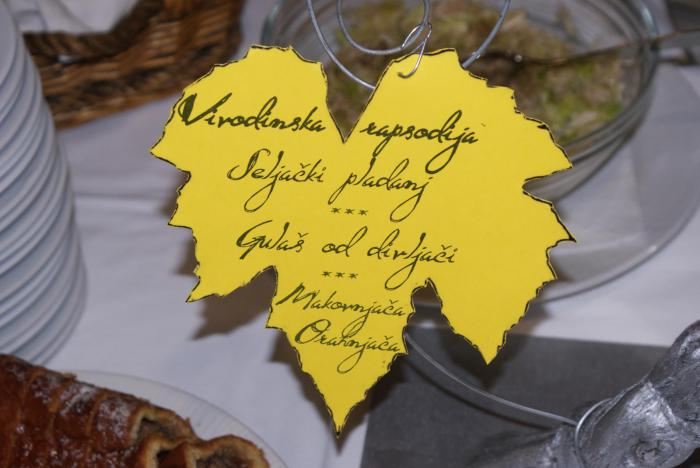 Vivodinska rapsodija
Seljački pladanj
***
Gulaš od divljači
***
Makovnjača
Orahnjača